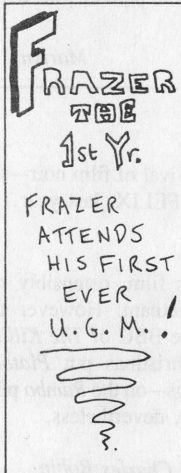 FRAZER
THE
1st Yr.
FRAZER
ATTENDS
HIS FIRST
EVER
U.G.M.!